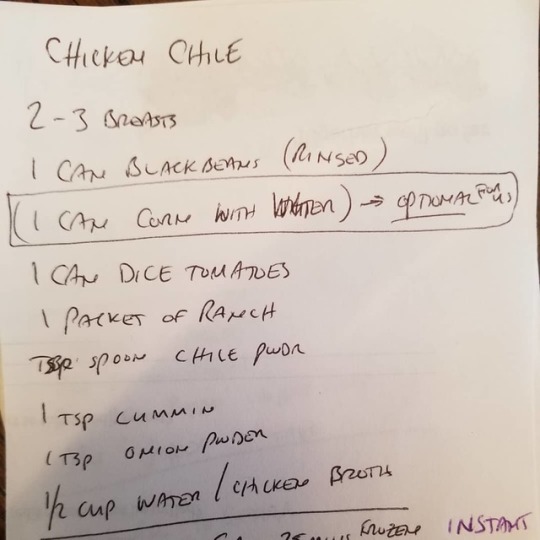 CHICKEN CHILE
2-3 BREASTS
1 CAN BLACKBEANS (RINSED)
(1 CAN CORN WITH WATER) → OPTIONAL FOR US
1 CAN DICE TOMATOES
1 PACKET OF RANCH
TSP SPOON CHILE PWDR
1 TSP CUMMIN
1 TSP ONION PWDER
1/2 CUP WATER / CHICKEN BROTH
FROZEN INSTANT